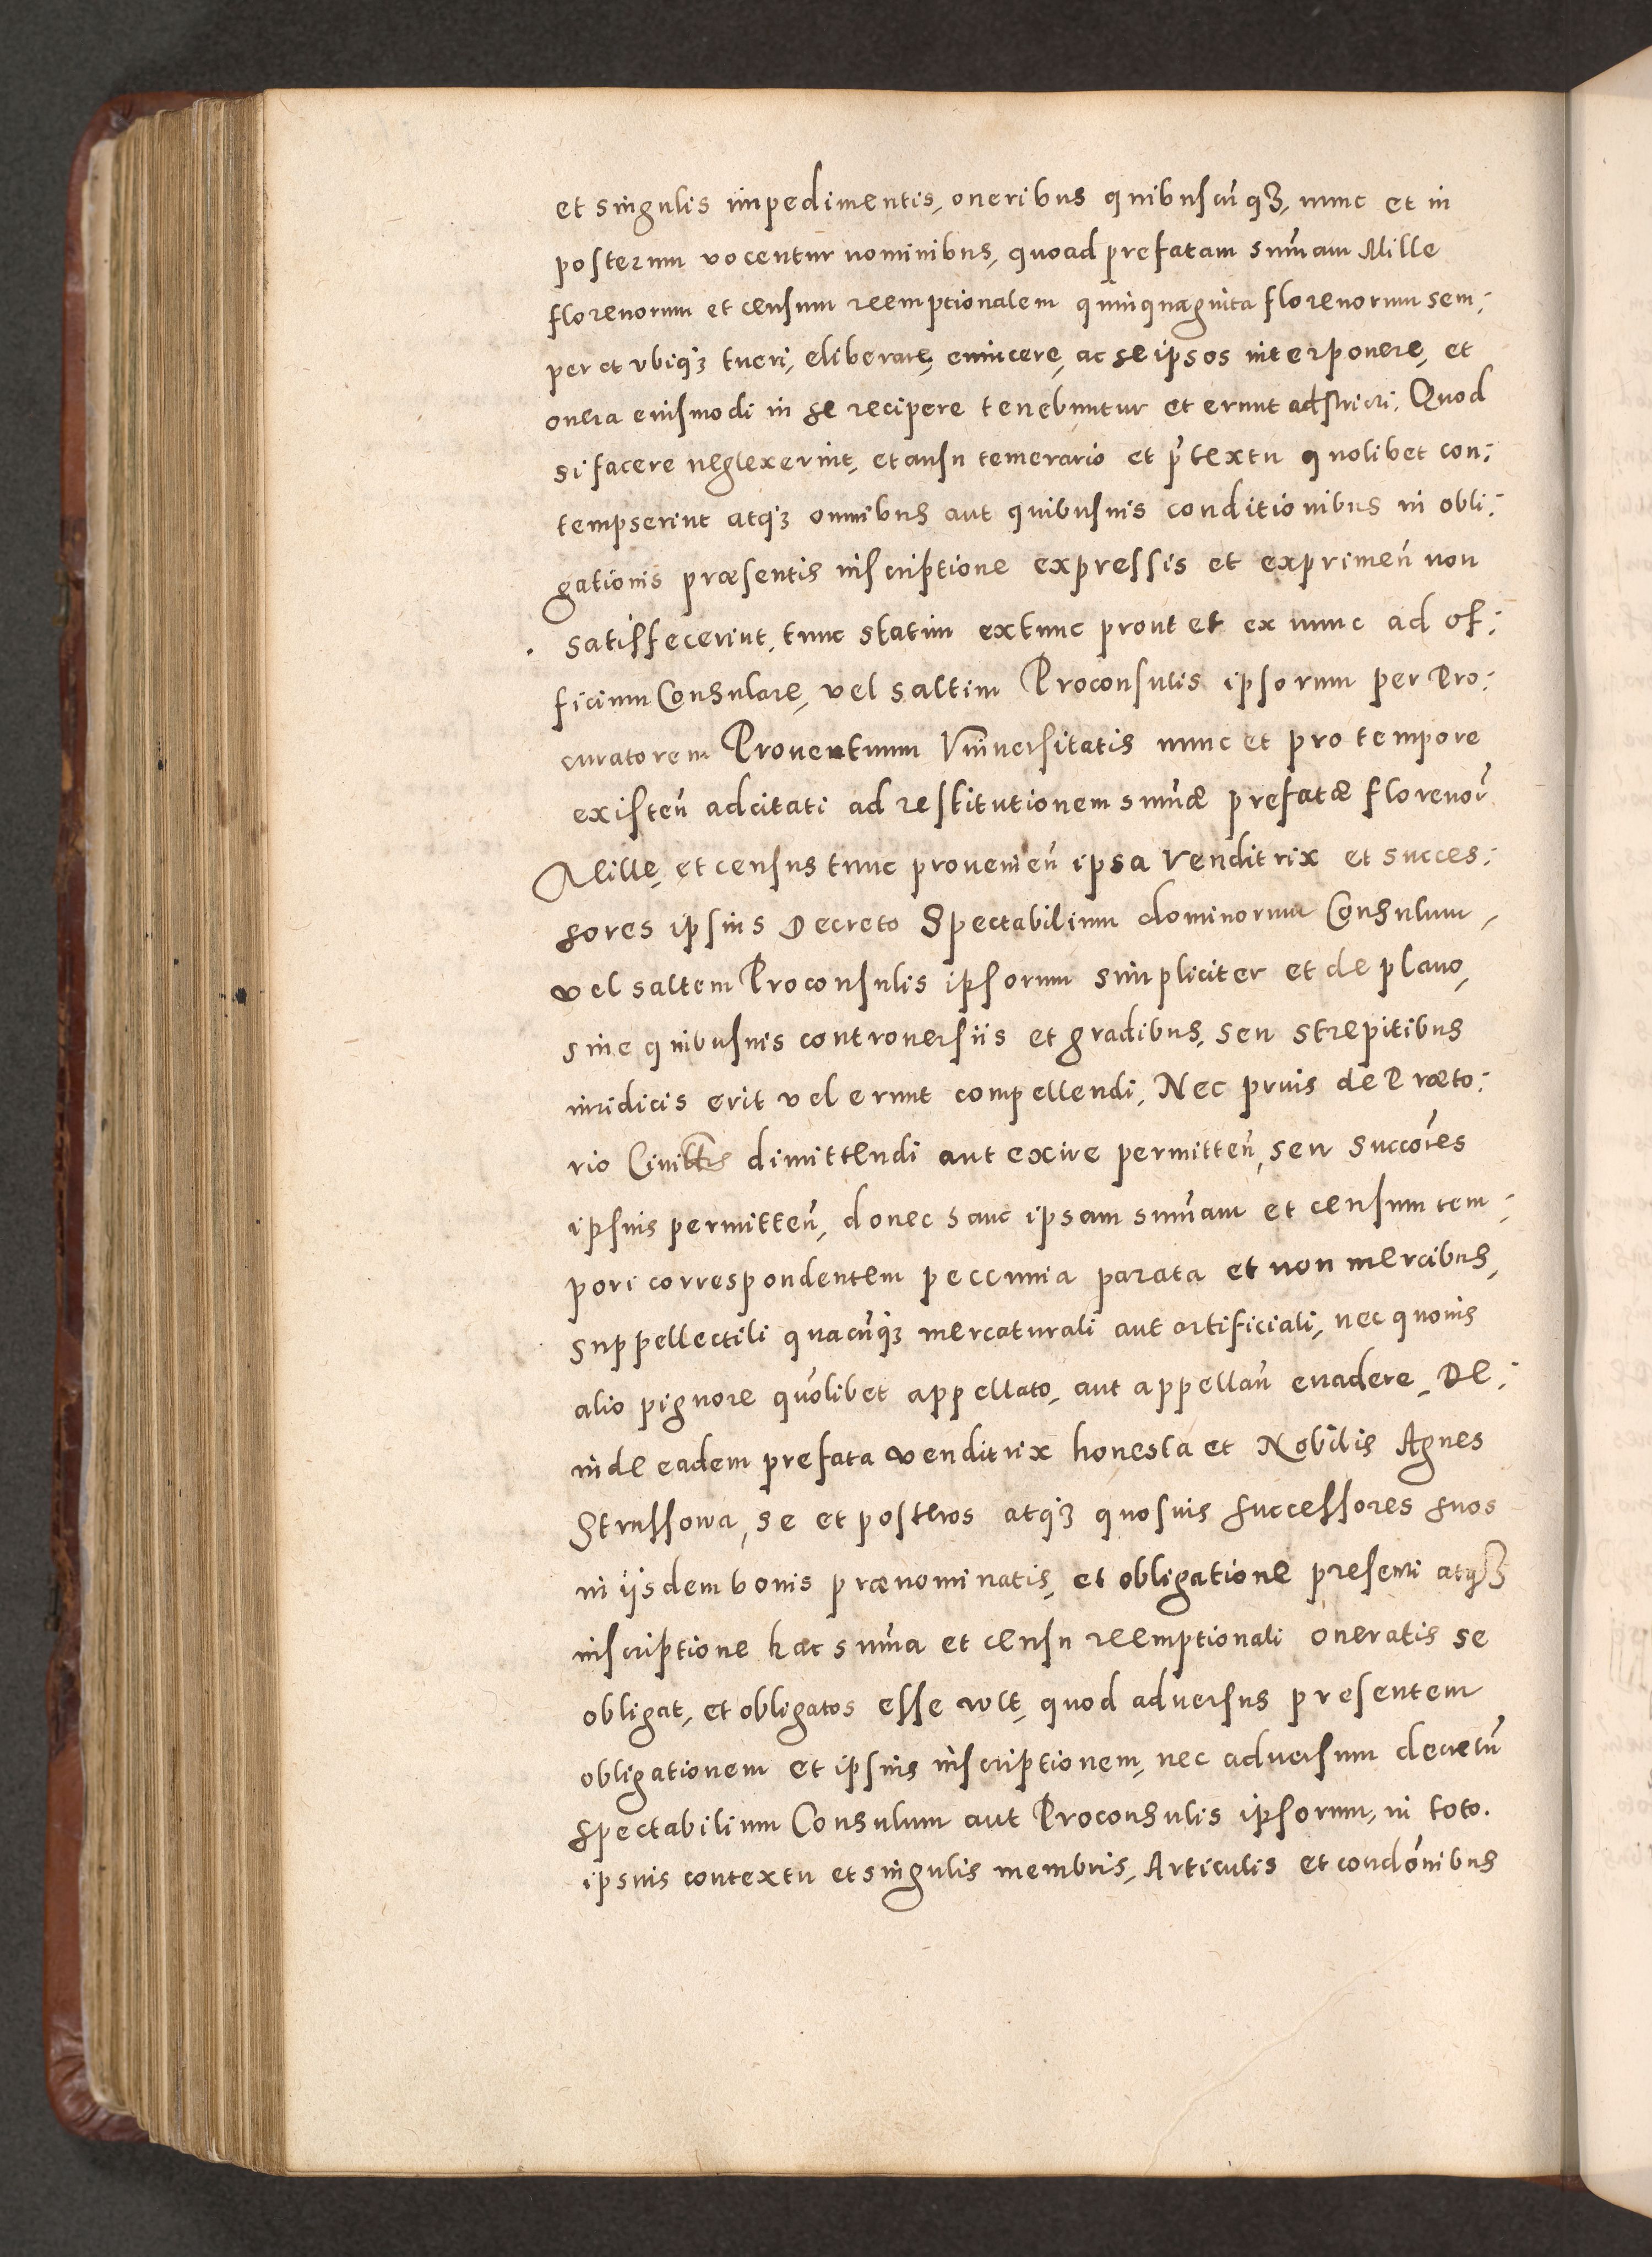 et singulis impedimentis, oneribus quibuscūqz, nunc et in
posterum vocentur nominibus, quoad prefatam sum̄am Mille
florenorum et censum reemptionalem quinquaginta florenorum sem:
per et vbiqz tueri, eliberare, euincere, ac se ipsos interponere, et
onera eiusmodi in se recipere tenebuntur et erunt adstricti. Quod
si facere neglexerint, et ausu temerario et p̄textu quolibet con:
tempserint atqz omnibus aut quibusuis conditionibus in obli:
gationis præsentis inscriptione expressis et exprimen̄ non
satisfecerint, tunc statim extunc prout et ex nunc ad of:
ficium Consulare, vel saltim Proconsulis ipsorum per Pro:
curatorem Prouentuum Vniuersitatis nunc et pro tempore
existen̄ adcitati ad restitutionem sum̄æ prefatæ florenor̄
Mille, et census tunc prouenien̄ ipsa Venditrix et succes:
sores ipsius Decreto Spectabilium dominorum Consulum,
vel saltem Proconsulis ipsorum simpliciter et de plano,
sine quibusuis controuersiis et gradibus, seu strepitibus
iuridicis erit vel erunt compellendi, Nec prius de Præto:
rio Ciuitt̄is dimittendi aut exire permitten̄, seu succōres
ipsius permitten̄, donec sanc ipsam sum̄am et censum tem:
pori correspondentem peccunia parata et non mercibus,
suppellectili quacūqz mercaturali aut artificiali, nec quouis
alio pignore quolibet appellato, aut appellan̄ euadere, De:
inde eadem prefata venditrix honesta et Nobilis Agnes
Strussowa, se et posteros atqz quosuis successores suos
in ijsdem bonis prænominatis, et obligatione presenti atqz
inscriptione hac sum̄a et censu reemptionali oneratis se
obligat, et obligatos esse wlt, quod aduersus presentem
obligationem et ipsius inscriptionem, nec aduersum decretū
spectabilium Consulum aut Proconsulis ipsorum, in toto.
ipsius contextu et singulis membris, Articulis et condōnibus